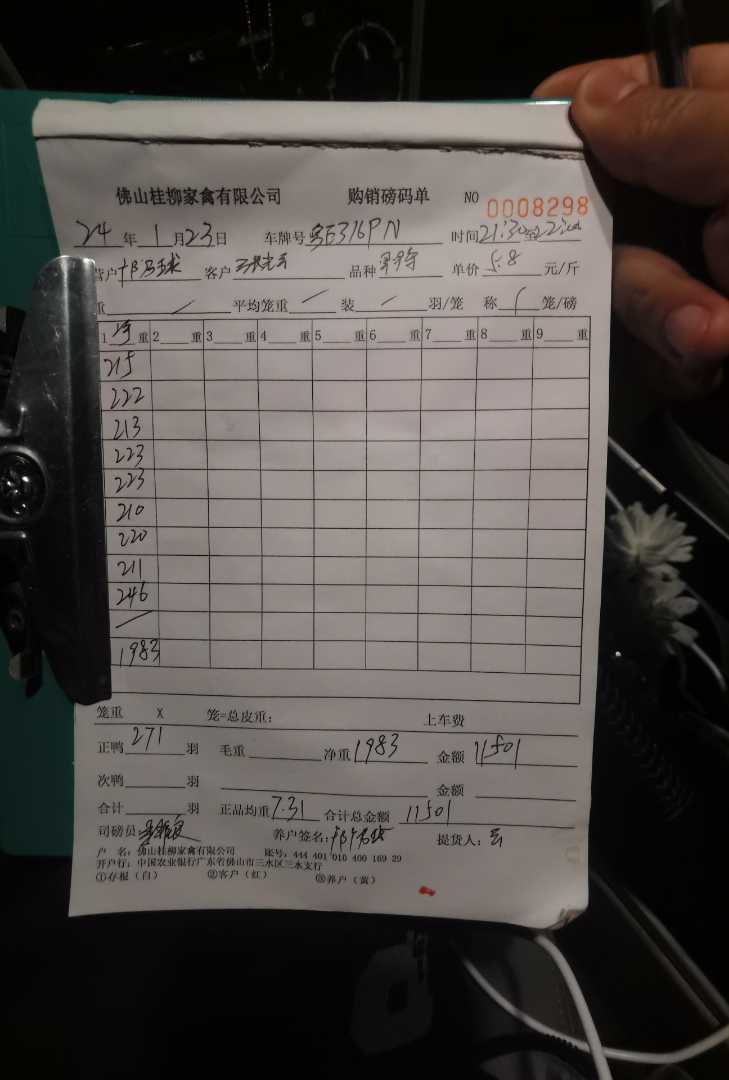 佛山桂柳家禽有限公司 购销磅码单 NO 0008298
24 年 1 月 23 日 车牌号 粤E316PN 时间 21:30
户 客户 品种 单价 5.8 元/斤
重 / 平均笼重 / 装 / 羽/笼 称 笼/磅
1 净 重 2 重 3 重 4 重 5 重 6 重 7 重 8 重 9 重
215
222
213
223
223
210
220
211
246
/
1983
笼重 X 笼=总皮重: 上车费
正鸭 271 羽 毛重 净重 1983 金额 11501
次鸭 羽 金额
合计 羽 正品均重 7.31 合计总金额 11501
司磅员: 养户签名: 提货人: 云
户 名: 佛山桂柳家禽有限公司 账号: 444 401 010 400 169 29
开户行: 中国农业银行广东省佛山市三水区三水支行
①存根(白) ②客户(红) ③养户(黄)